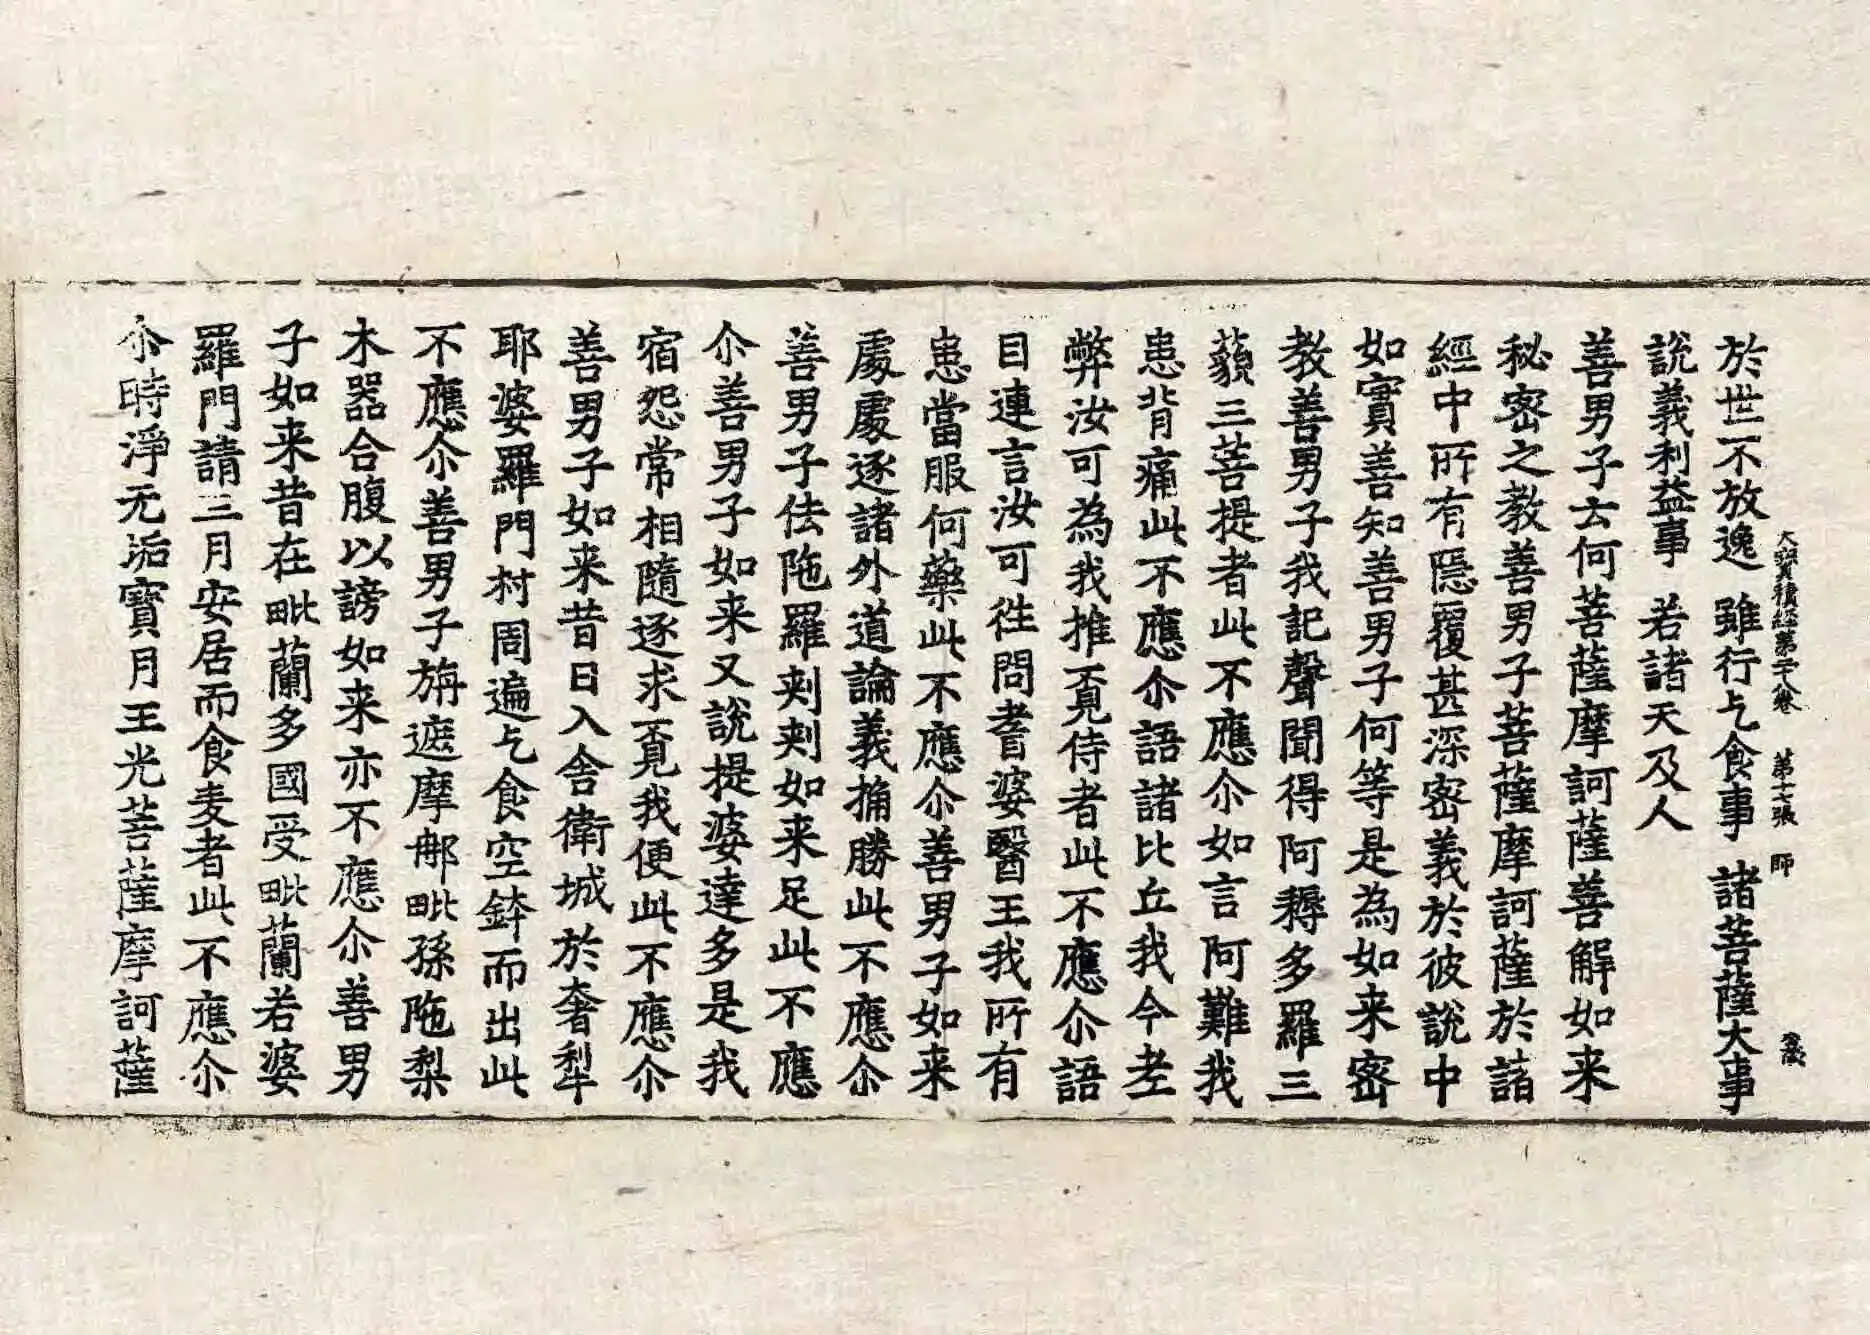 大寶積經第二十八卷 第十七張 師
於世不放逸 雖行乞食事 諸菩薩大事
說義利益事 若諸天及人
善男子云何菩薩摩訶薩善解如来
秘密之教善男子菩薩摩訶薩於諸
經中所有隱覆甚深密義於彼說中
如實善知善男子何等是為如来密
教善男子我記聲聞得阿耨多羅三
藐三菩提者此不應尒如言阿難我
患背痛此不應尒語諸比丘我今老
弊汝可為我推覓侍者此不應尒語
目連言汝可往問耆婆醫王我所有
患當服何藥此不應尒善男子如来
處處逐諸外道論義捔勝此不應尒
善男子佉陁羅刾刾如来足此不應
尒善男子如来又說提婆達多是我
宿怨常相隨逐求覓我便此不應尒
善男子如来昔日入舍衛城於奢犁
耶婆羅門村周遍乞食空鉢而出此
不應尒善男子旃遮摩那毗孫陁梨
木器合腹以謗如来亦不應尒善男
子如来昔在毗蘭多國受毗蘭若婆
羅門請三月安居而食麦者此不應尒
尒時淨无垢寶月王光菩薩摩訶薩